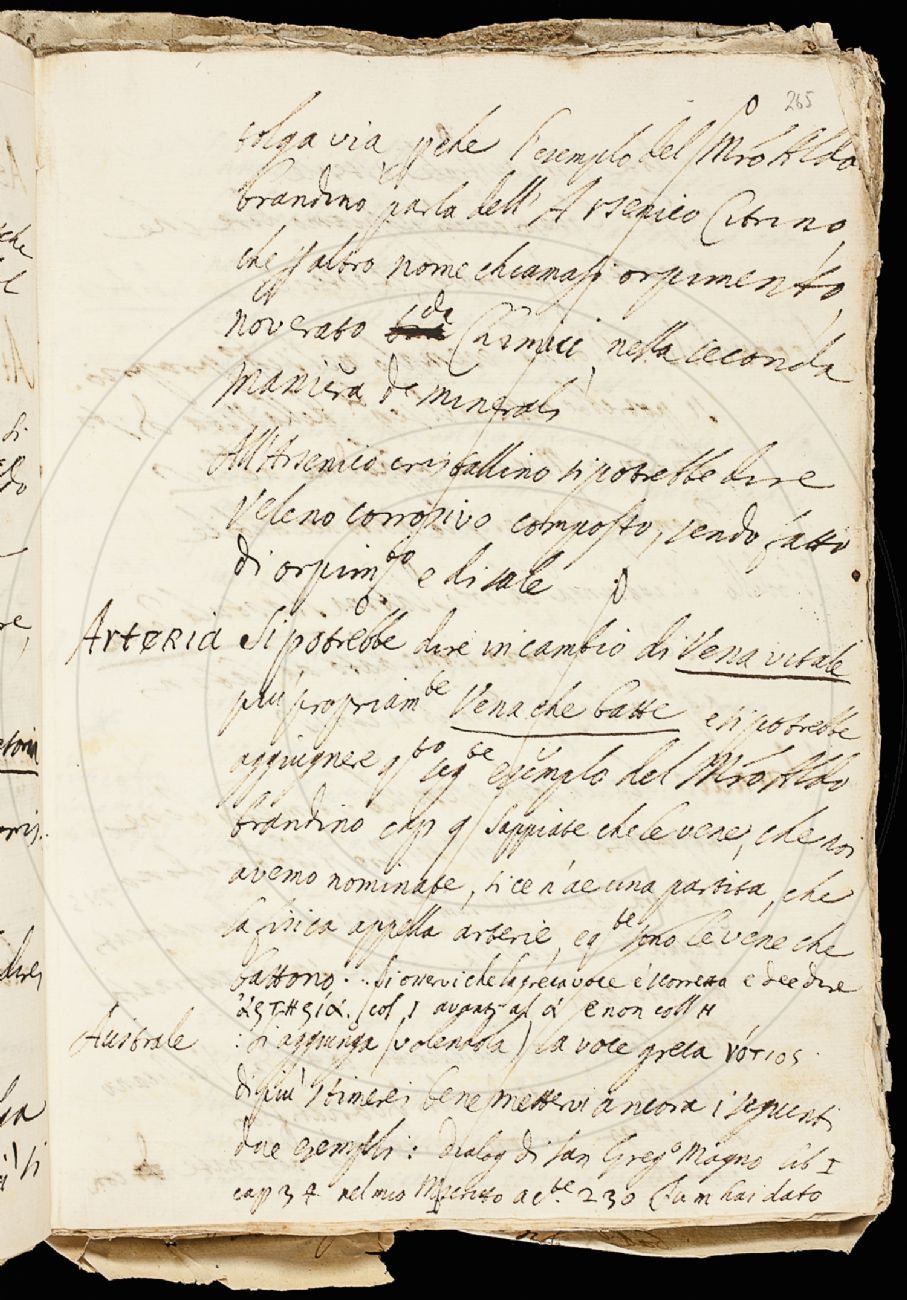 265
tolga via pche l'esemplo del Mro Aldo
brandino parla dell'Arsenico Citrino,
che p altro nome chiamasi orpimento,
noverato da Chimici nella seconda
maniera de minerali
All'Arsenico cristallino si potrebbe dire
Veleno corrosivo composto, sendo fatto
di orpimto e di sale
Arteria Si potrebbe dire in cambio di Vena vitale
più propriamte Vena che batte e si potrebbe
aggiugnere qto segte esemplo del Mro Aldo
brandino cap 9 Sappiate che le vene, che noi
avemo nominate, si ce n'ae una partita, che
la fisica appella arterie, e qte sono le vene che
battono. Si osservi che la greca voce è scorretta e dee dire
ἀρτηρία. col ι avanti al α e non coll H
Australe : Si aggiunga (volendola) la voce greca νότιος
di più stimerei bene mettervi ancora i seguenti
due esempli: Dialog di San Grego Magno lib I
cap 34 nel mio Mscritto a cte. 230